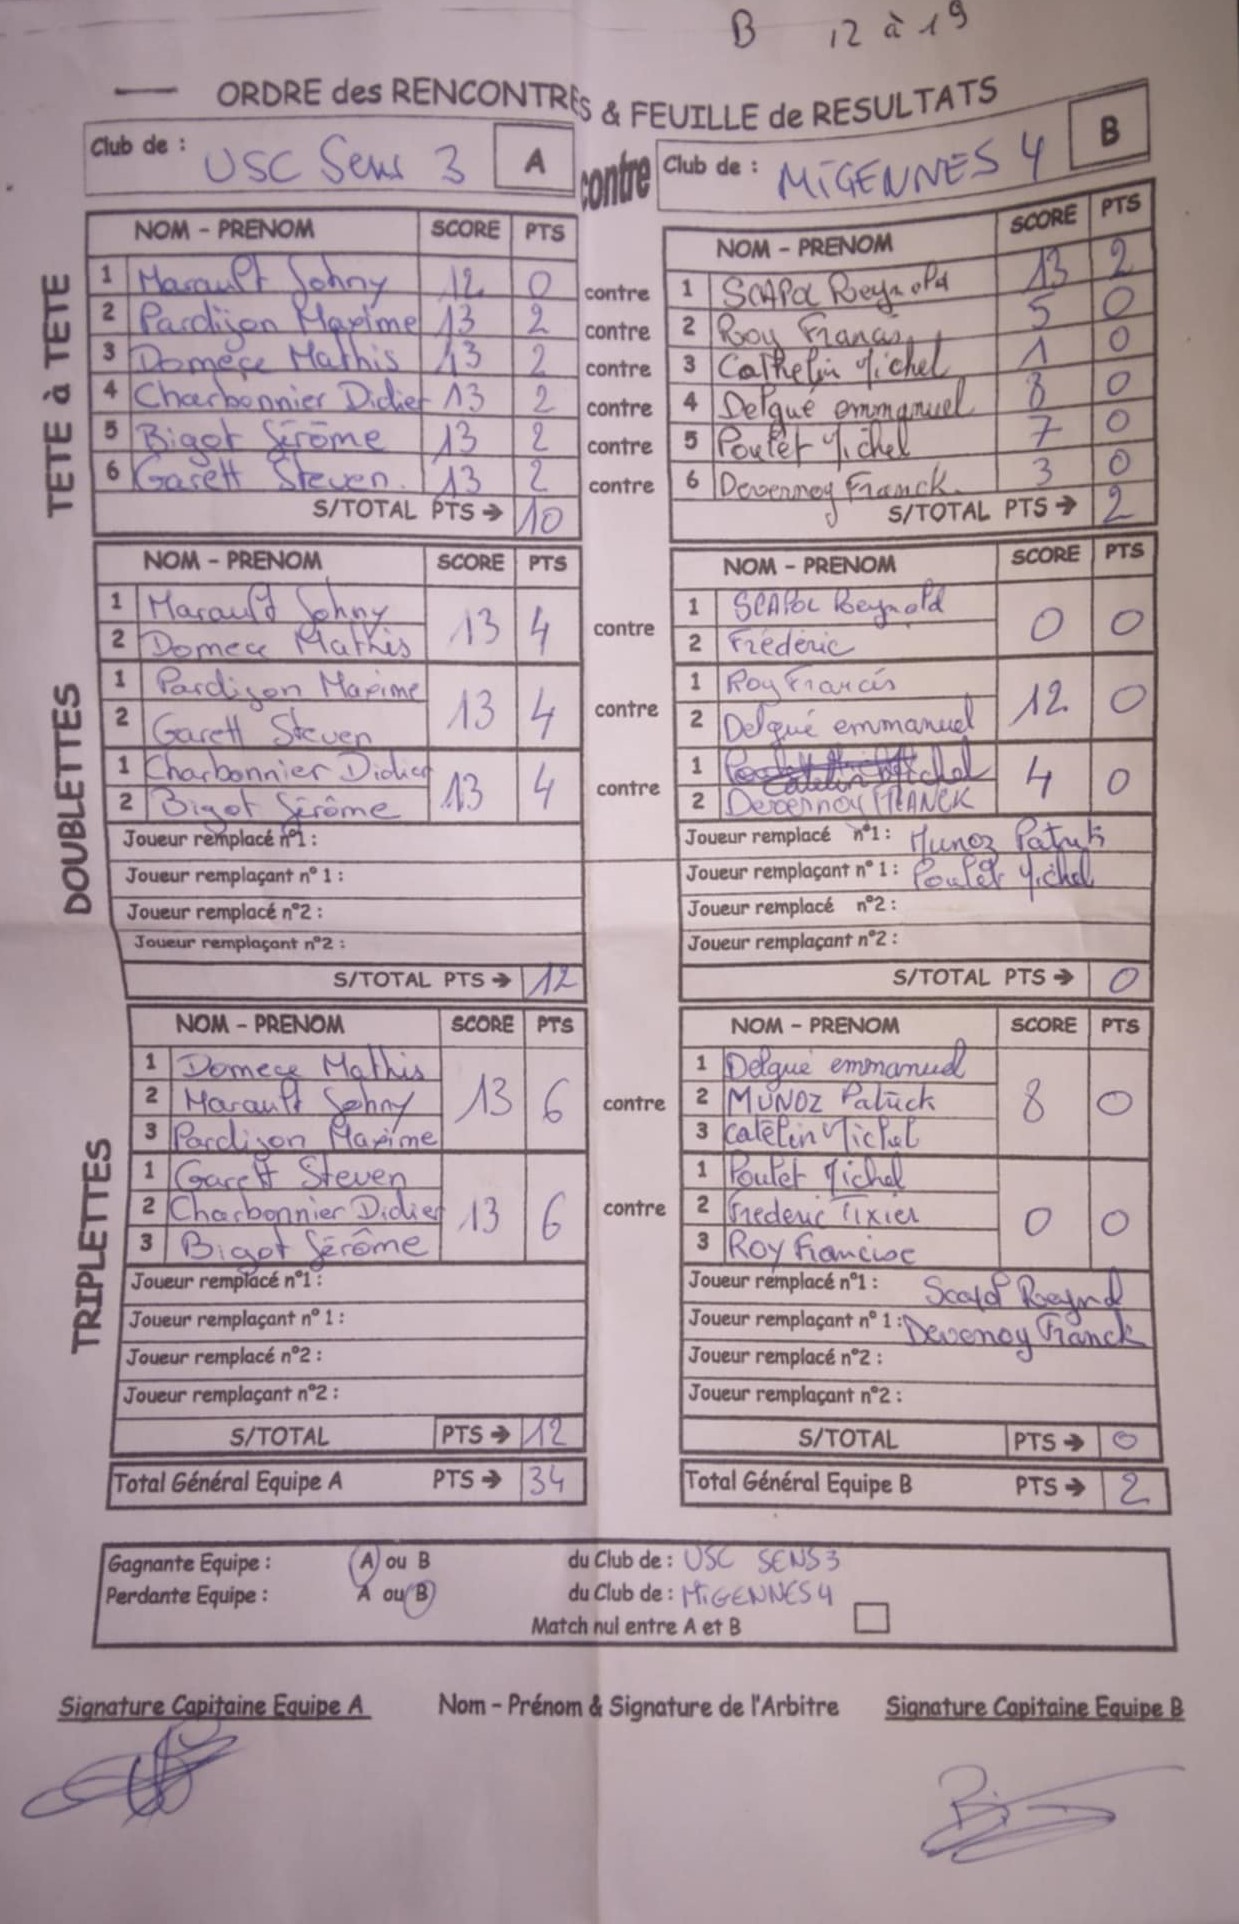 B 12 à 19
ORDRE des RENCONTRES & FEUILLE de RESULTATS
Club de : USC Sens 3 A contre Club de : MiGENNES 4 B
TETE à TETE
NOM - PRENOM SCORE PTS NOM - PRENOM SCORE PTS
1 Marault Johny 12 0 contre 1 SCAPOL Reynold 13 2
2 Pardijon Maxime 13 2 contre 2 Roy Francis 5 0
3 Domece Mathis 13 2 contre 3 Cathelin Michel 1 0
4 Charbonnier Didier 13 2 contre 4 Delqué emmanuel 8 0
5 Bigot Jérôme 13 2 contre 5 Poulet Michel 7 0
6 Garett Steven 13 2 contre 6 Devennoy Franck. 3 0
S/TOTAL PTS → 10 S/TOTAL PTS → 2
DOUBLETTES
NOM - PRENOM SCORE PTS NOM - PRENOM SCORE PTS
1 Marault Johny 13 4 contre 1 SCAPOL Reynold 0 0
2 Domece Mathis 2 Frédéric
1 Pardijon Maxime 13 4 contre 1 Roy Francis 12 0
2 Garett Steven 2 Delqué emmanuel
1 Charbonnier Didier 13 4 contre 1 Catelin Michel 4 0
2 Bigot Jérôme 2 Devennoy FRANCK
Joueur remplacé n°1 : Joueur remplacé n°1 : Munoz Patrick
Joueur remplaçant n° 1 : Joueur remplaçant n° 1 : Poulet Michel
Joueur remplacé n°2 : Joueur remplacé n°2 :
Joueur remplaçant n°2 : Joueur remplaçant n°2 :
S/TOTAL PTS → 12 S/TOTAL PTS → 0
TRIPLETTES
NOM - PRENOM SCORE PTS NOM - PRENOM SCORE PTS
1 Domece Mathis 13 6 contre 1 Delqué emmanuel 8 0
2 Marault Johny 2 MUNOZ Patrick
3 Pardijon Maxime 3 Catelin Michel
1 Garett Steven 13 6 contre 1 Poulet Michel 0 0
2 Charbonnier Didier 2 Frederic Tixier
3 Bigot Jérôme 3 ROY Francisc
Joueur remplacé n°1 : Joueur remplacé n°1 : Scapol Reynd
Joueur remplaçant n° 1 : Joueur remplaçant n° 1 : Devenoy Franck
Joueur remplacé n°2 : Joueur remplacé n°2 :
Joueur remplaçant n°2 : Joueur remplaçant n°2 :
S/TOTAL PTS → 12 S/TOTAL PTS → 0
Total Général Equipe A PTS → 34 Total Général Equipe B PTS → 2
Gagnante Equipe : A ou B du Club de : USC SENS 3
Perdante Equipe : A ou B du Club de : MiGENNES 4
Match nul entre A et B
Signature Capitaine Equipe A Nom - Prénom & Signature de l'Arbitre Signature Capitaine Equipe B